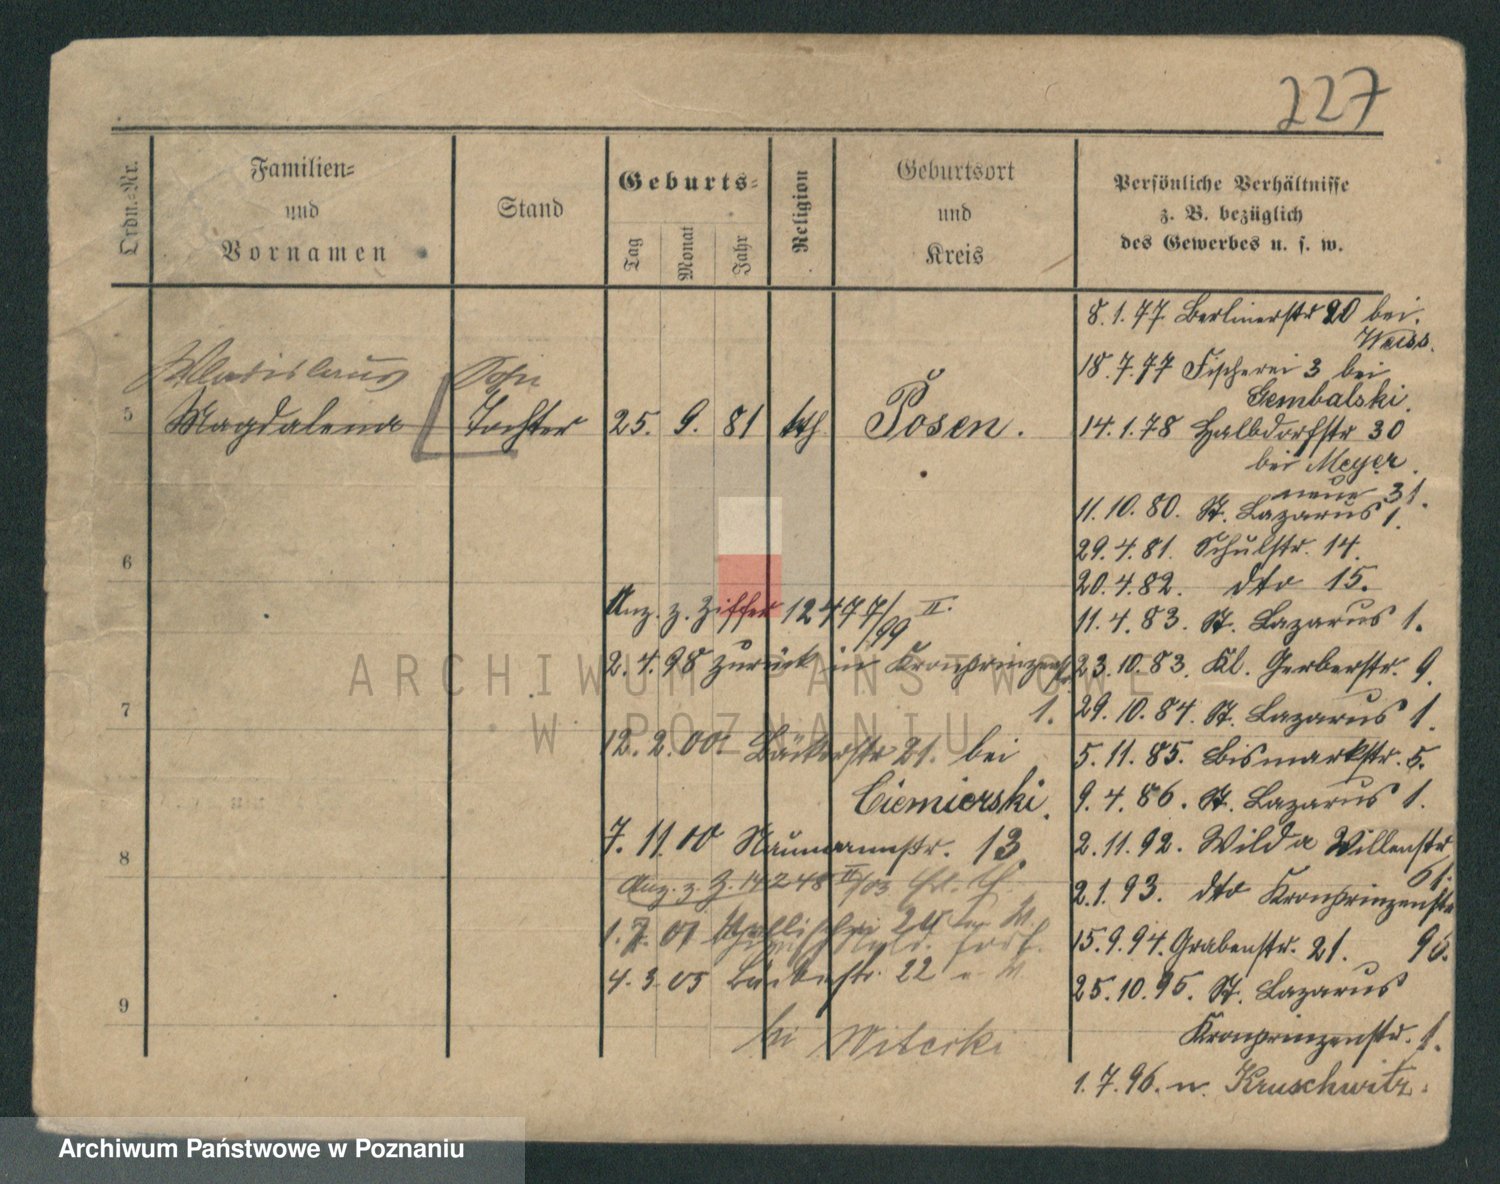 227
Ordn.-Nr.
Familien-
und
Vornamen
Stand
Geburts-
Tag
Monat
Jahr
Religion
Geburtsort
und
Kreis
Persönliche Verhältnisse
z. B. bezüglich
des Gewerbes u. s. w.
Wladislaus Sohn
5 Magdalena Tochter 25. 9. 81 kth Posen.
6
7
8
9
Anz. z. Ziffer 12477/99 II.
2.4.98 zurück in Kronprinzenstr
1.
12.2.00. Bäckerstr 21. bei
Ciemierski.
7.11.00 Naumannstr. 13.
Anz. z. Z. 14248 II/03
1.7.01
4.3.05 22
bei Witecki
8.1.77 Berlinerstr 20 bei
Weiss.
18.7.77 Fischerei 3 bei
Gembalski.
14.1.78 Halbdorfstr 30
bei Meyer.
neue 31.
11.10.80. St. Lazarus 1.
29.4.81. Schulstr. 14.
20.4.82. dto 15.
11.4.83. St. Lazarus 1.
23.10.83. Kl. Gerberstr. 9.
29.10.84. St. Lazarus 1.
5.11.85. Bismarkstr. 5.
9.4.86. St. Lazarus 1.
2.11.92. Wilda Willenstr
61.
2.1.93. dto Kronprinzenstr
15.9.94. Grabenstr. 21. 96.
25.10.95. St. Lazarus
Kronprinzenstr. 1.
1.7.96. n. Kruschwitz.
ARCHIWUM PAŃSTWOWE
W POZNANIU
Archiwum Państwowe w Poznaniu